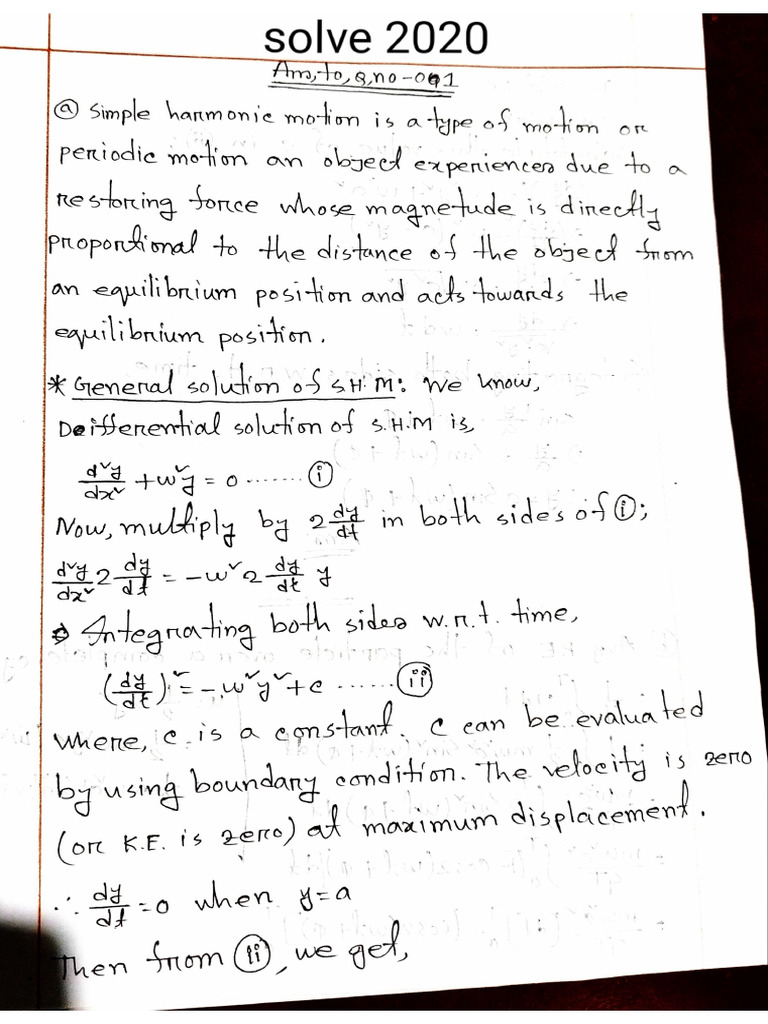 solve 2020
Ans, to, Q, no-001
ⓐ Simple harmonic motion is a type of motion or
periodic motion an object experiences due to a
restoring force whose magnetude is directly
proportional to the distance of the object from
an equilibrium position and acts towards the
equilibrium position.
* General solution of S.H.M: We know,
Deifferential solution of S.H.M is,
d²y/dx² + ω²y = 0 ....... ⓘ
Now, multiply by 2 dy/dt in both sides of ⓘ;
d²y/dx² 2 dy/dt = -ω² 2 dy/dt y
Integrating both sides w.r.t. time,
(dy/dt)² = -ω²y² + c ...... (ii)
where, c is a constant. c can be evaluated
by using boundary condition. The velocity is zero
(or K.E. is zero) at maximum displacement.
∴ dy/dt = 0 when y = a
Then from (ii), we get,